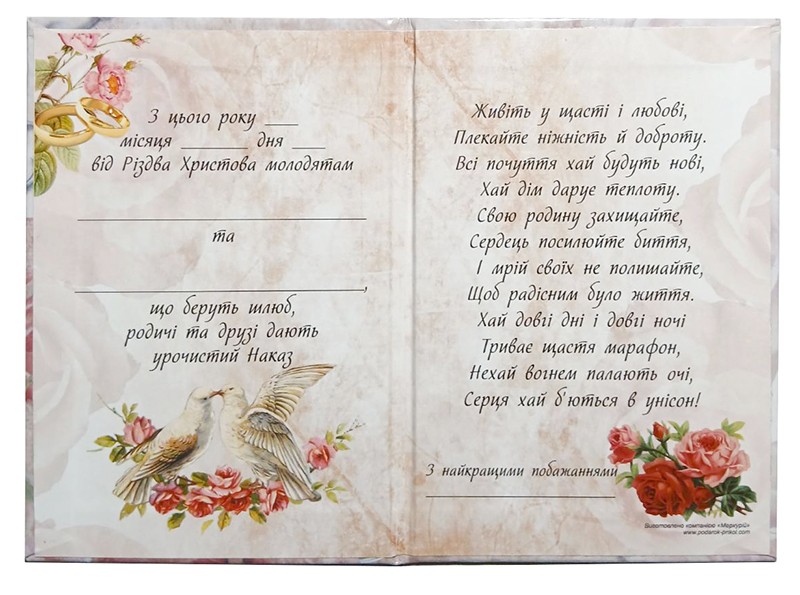 З цього року ___
місяця _______ дня ___
від Різдва Христова молодятам
та
,
що беруть шлюб,
родичі та друзі дають
урочистий Наказ
Живіть у щасті і любові,
Плекайте ніжність й доброту.
Всі почуття хай будуть нові,
Хай дім дарує теплоту.
Свою родину захищайте,
Сердець посилюйте биття,
І мрій своїх не полишайте,
Щоб радісним було життя.
Хай довгі дні і довгі ночі
Триває щастя марафон,
Нехай вогнем палають очі,
Серця хай б'ються в унісон!
З найкращими побажаннями
Виготовлено компанією «Меркурій»
www.podarok-prikol.com